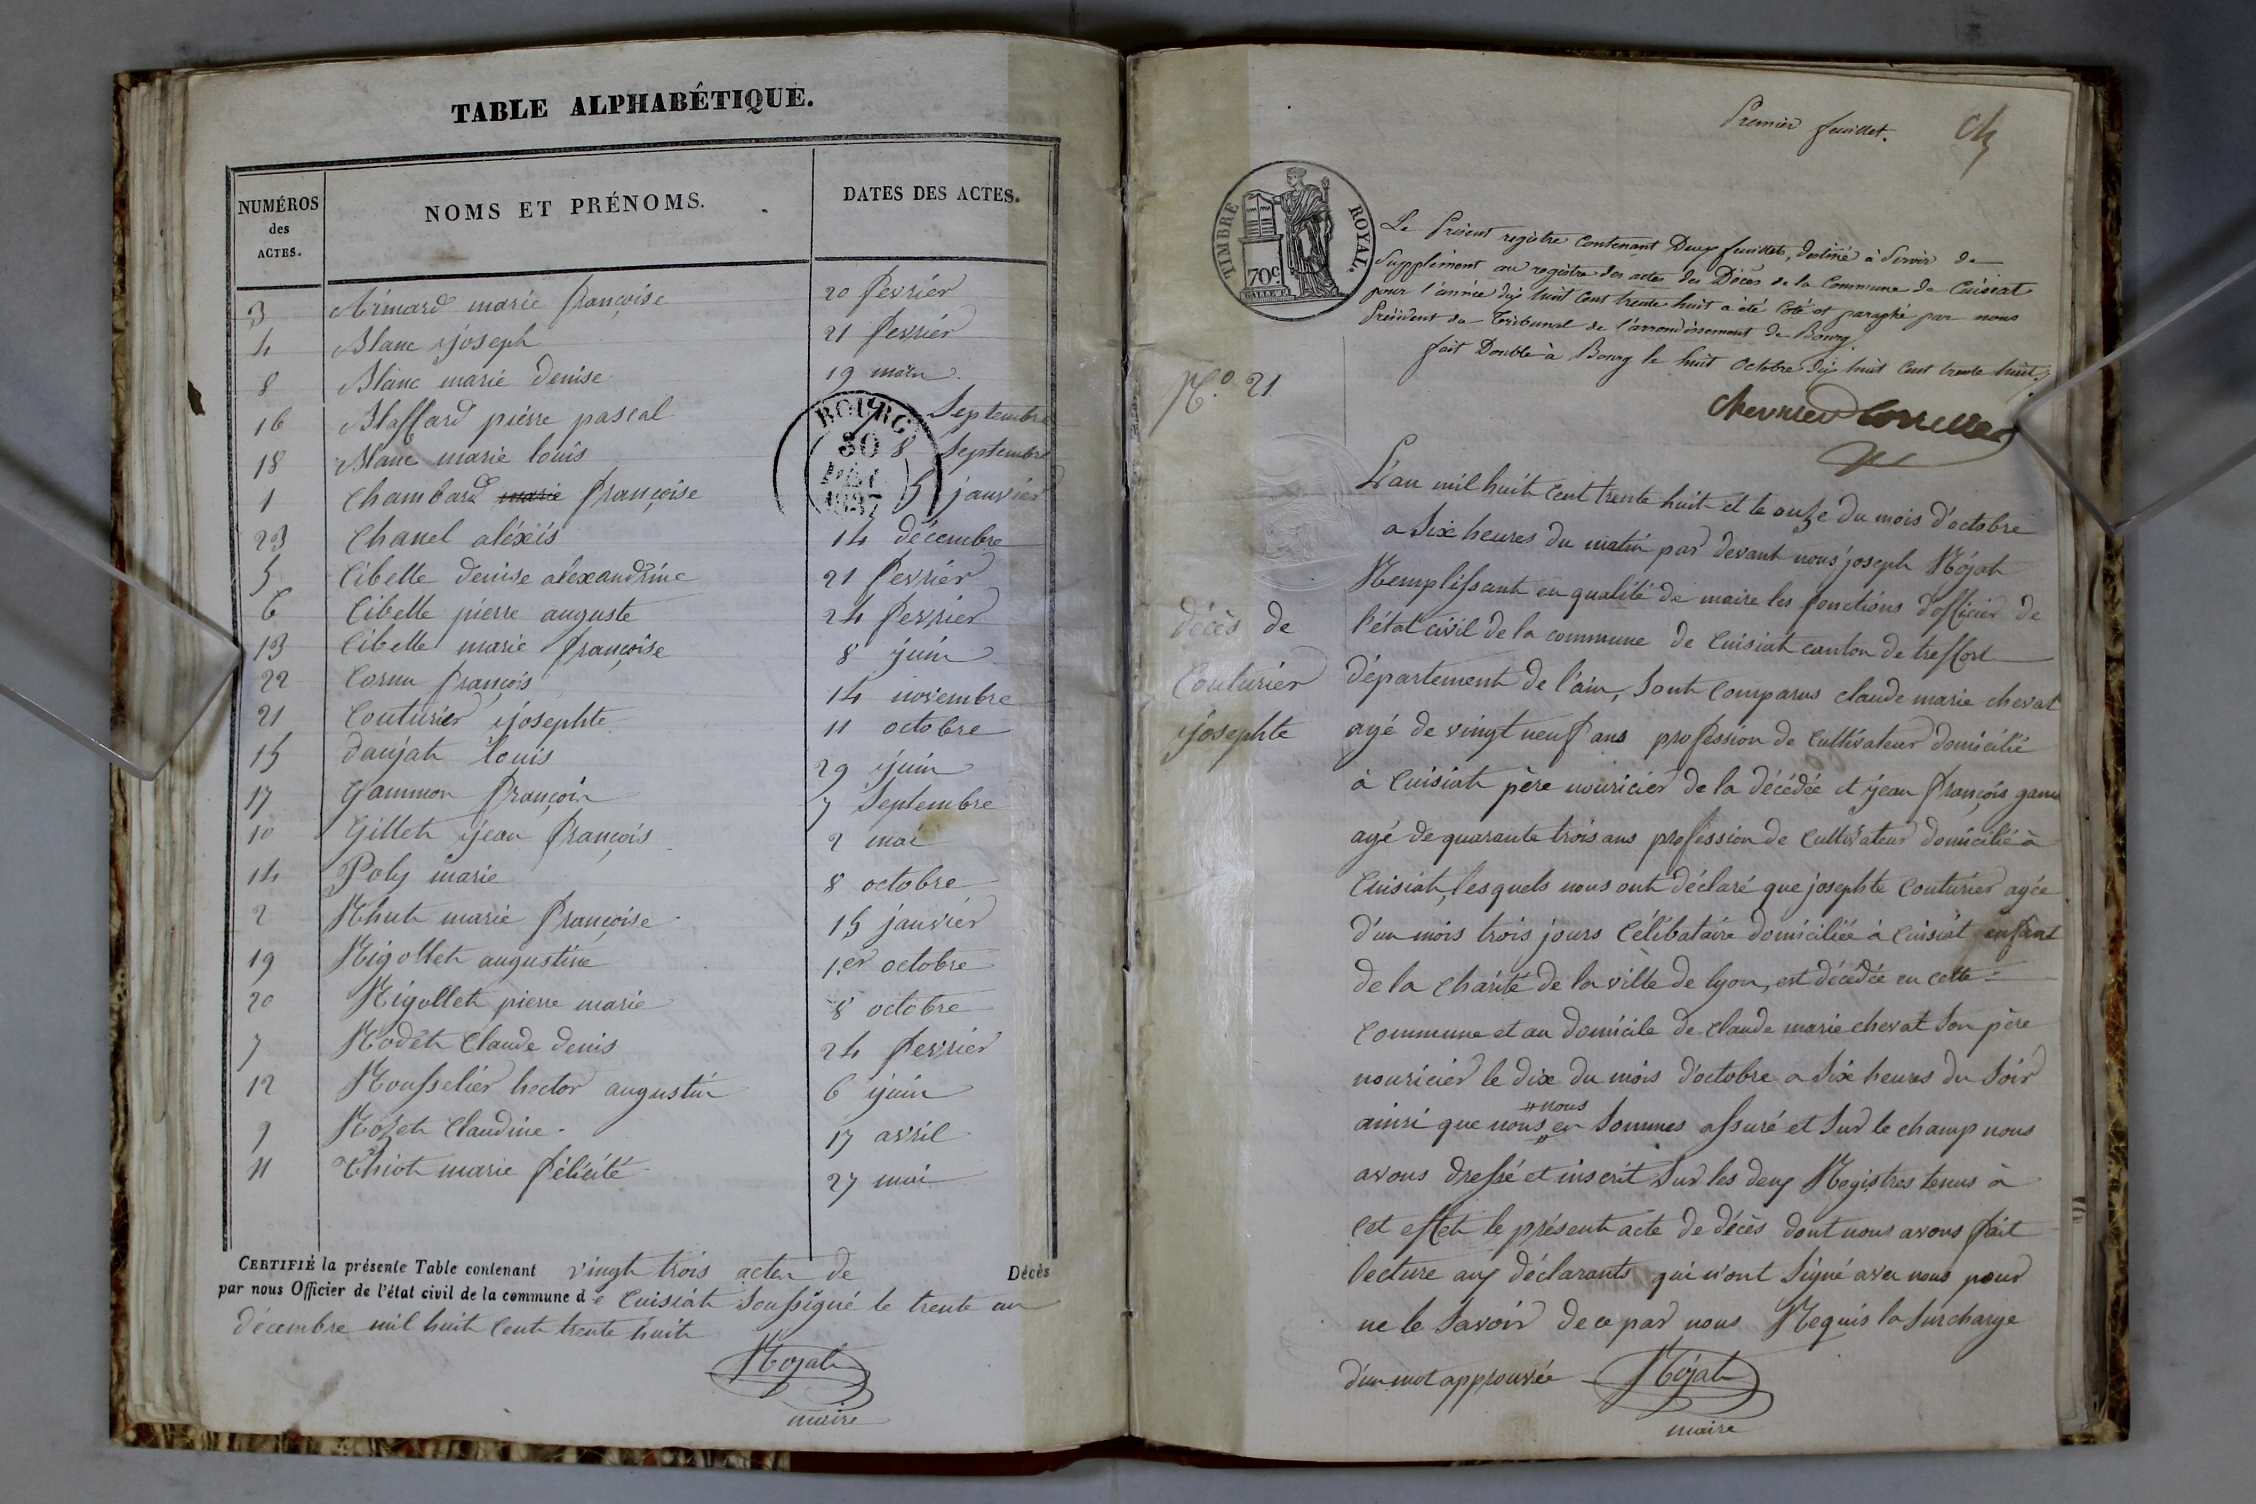 TABLE ALPHABÉTIQUE.
NUMÉROS des ACTES. NOMS ET PRÉNOMS. DATES DES ACTES.
3 marie françoise 20 fevrier
4 Blanc joseph 21 fevrier
8 Blanc marie denise 19 mars
16 Blaffard pierre pascal Septembre
18 Blanc marie louis 8 Septembre
1 Chambard marie françoise 5 janvier
23 Chanel aléxis 14 décembre
5 Cibelle denise alexandrine 21 fevrier
6 Cibelle pierre auguste 24 fevrier
13 Cibelle marie françoise 8 juin
22 Cornu françois 14 novembre
21 Couturier josephte 11 octobre
15 danjat louis 29 juin
17 Gammon françois 7 Septembre
10 Gillet jean françois 2 mai
14 Poly marie 8 octobre
2 Rhut marie françoise 15 janvier
19 Rigollet augustine 1.er octobre
20 Rigollet pierre marie 8 octobre
7 Rodet Claude denis 24 fevrier
12 Rousselier hector augustin 6 juin
9 Rozet Claudine 17 avril
11 Thiot marie félicité 27 mai
BOURG
30
1837
CERTIFIÉ la présente Table contenant vingt trois actes de Décès
par nous Officier de l'état civil de la commune de Cuisiat soussigné le trente un
décembre mil huit cent trente huit
Rojat
maire
Premier feuillet.
TIMBRE ROYAL.
70c
Le Présent registre contenant Deux feuillets, destiné à Servir de
Supplément au registre des actes des Décès de la Commune de Cuisiat
pour l'année dix huit cent trente huit a été Coté et paraphé par nous
Président du Tribunal de l'arrondissement de Bourg.
fait Double à Bourg le huit Octobre dix huit cent trente huit.
N.o 21
L'an mil huit cent trente huit et le onze du mois d'octobre
a Six heures du matin par devant nous joseph Rojat
Remplissant en qualité de maire les fonctions d'officier de
décès de
l'état civil de la commune de Cuisiat canton de treffort
Couturier
département de l'ain, Sont Comparus claude marie chevat
josephte
agé de vingt neuf ans profession de Cultivateur domicilié
à Cuisiat père nouricier de la décédée et jean françois
agé de quarante trois ans profession de Cultivateur domicilié à
Cuisiat, lesquels nous ont déclaré que josephte Couturier agée
d'un mois trois jours Célibataire domiciliée à Cuisiat enfant
de la Charité de la ville de lyon, est décédée en cette
Commune et au domicile de Claude marie chevat Son père
nouricier le dix du mois d'octobre a Six heures du Soir
ainsi que nous "nous en Sommes assuré et Sur le champ nous
avons dressé et inscrit Sur les deux Registres tenus à
cet effet le présent acte de décès dont nous avons fait
lecture aux déclarants qui n'ont Signé avec nous pour
ne le Savoir de ce par nous Requis la Surcharge
d'un mot approuvée Rojat
maire